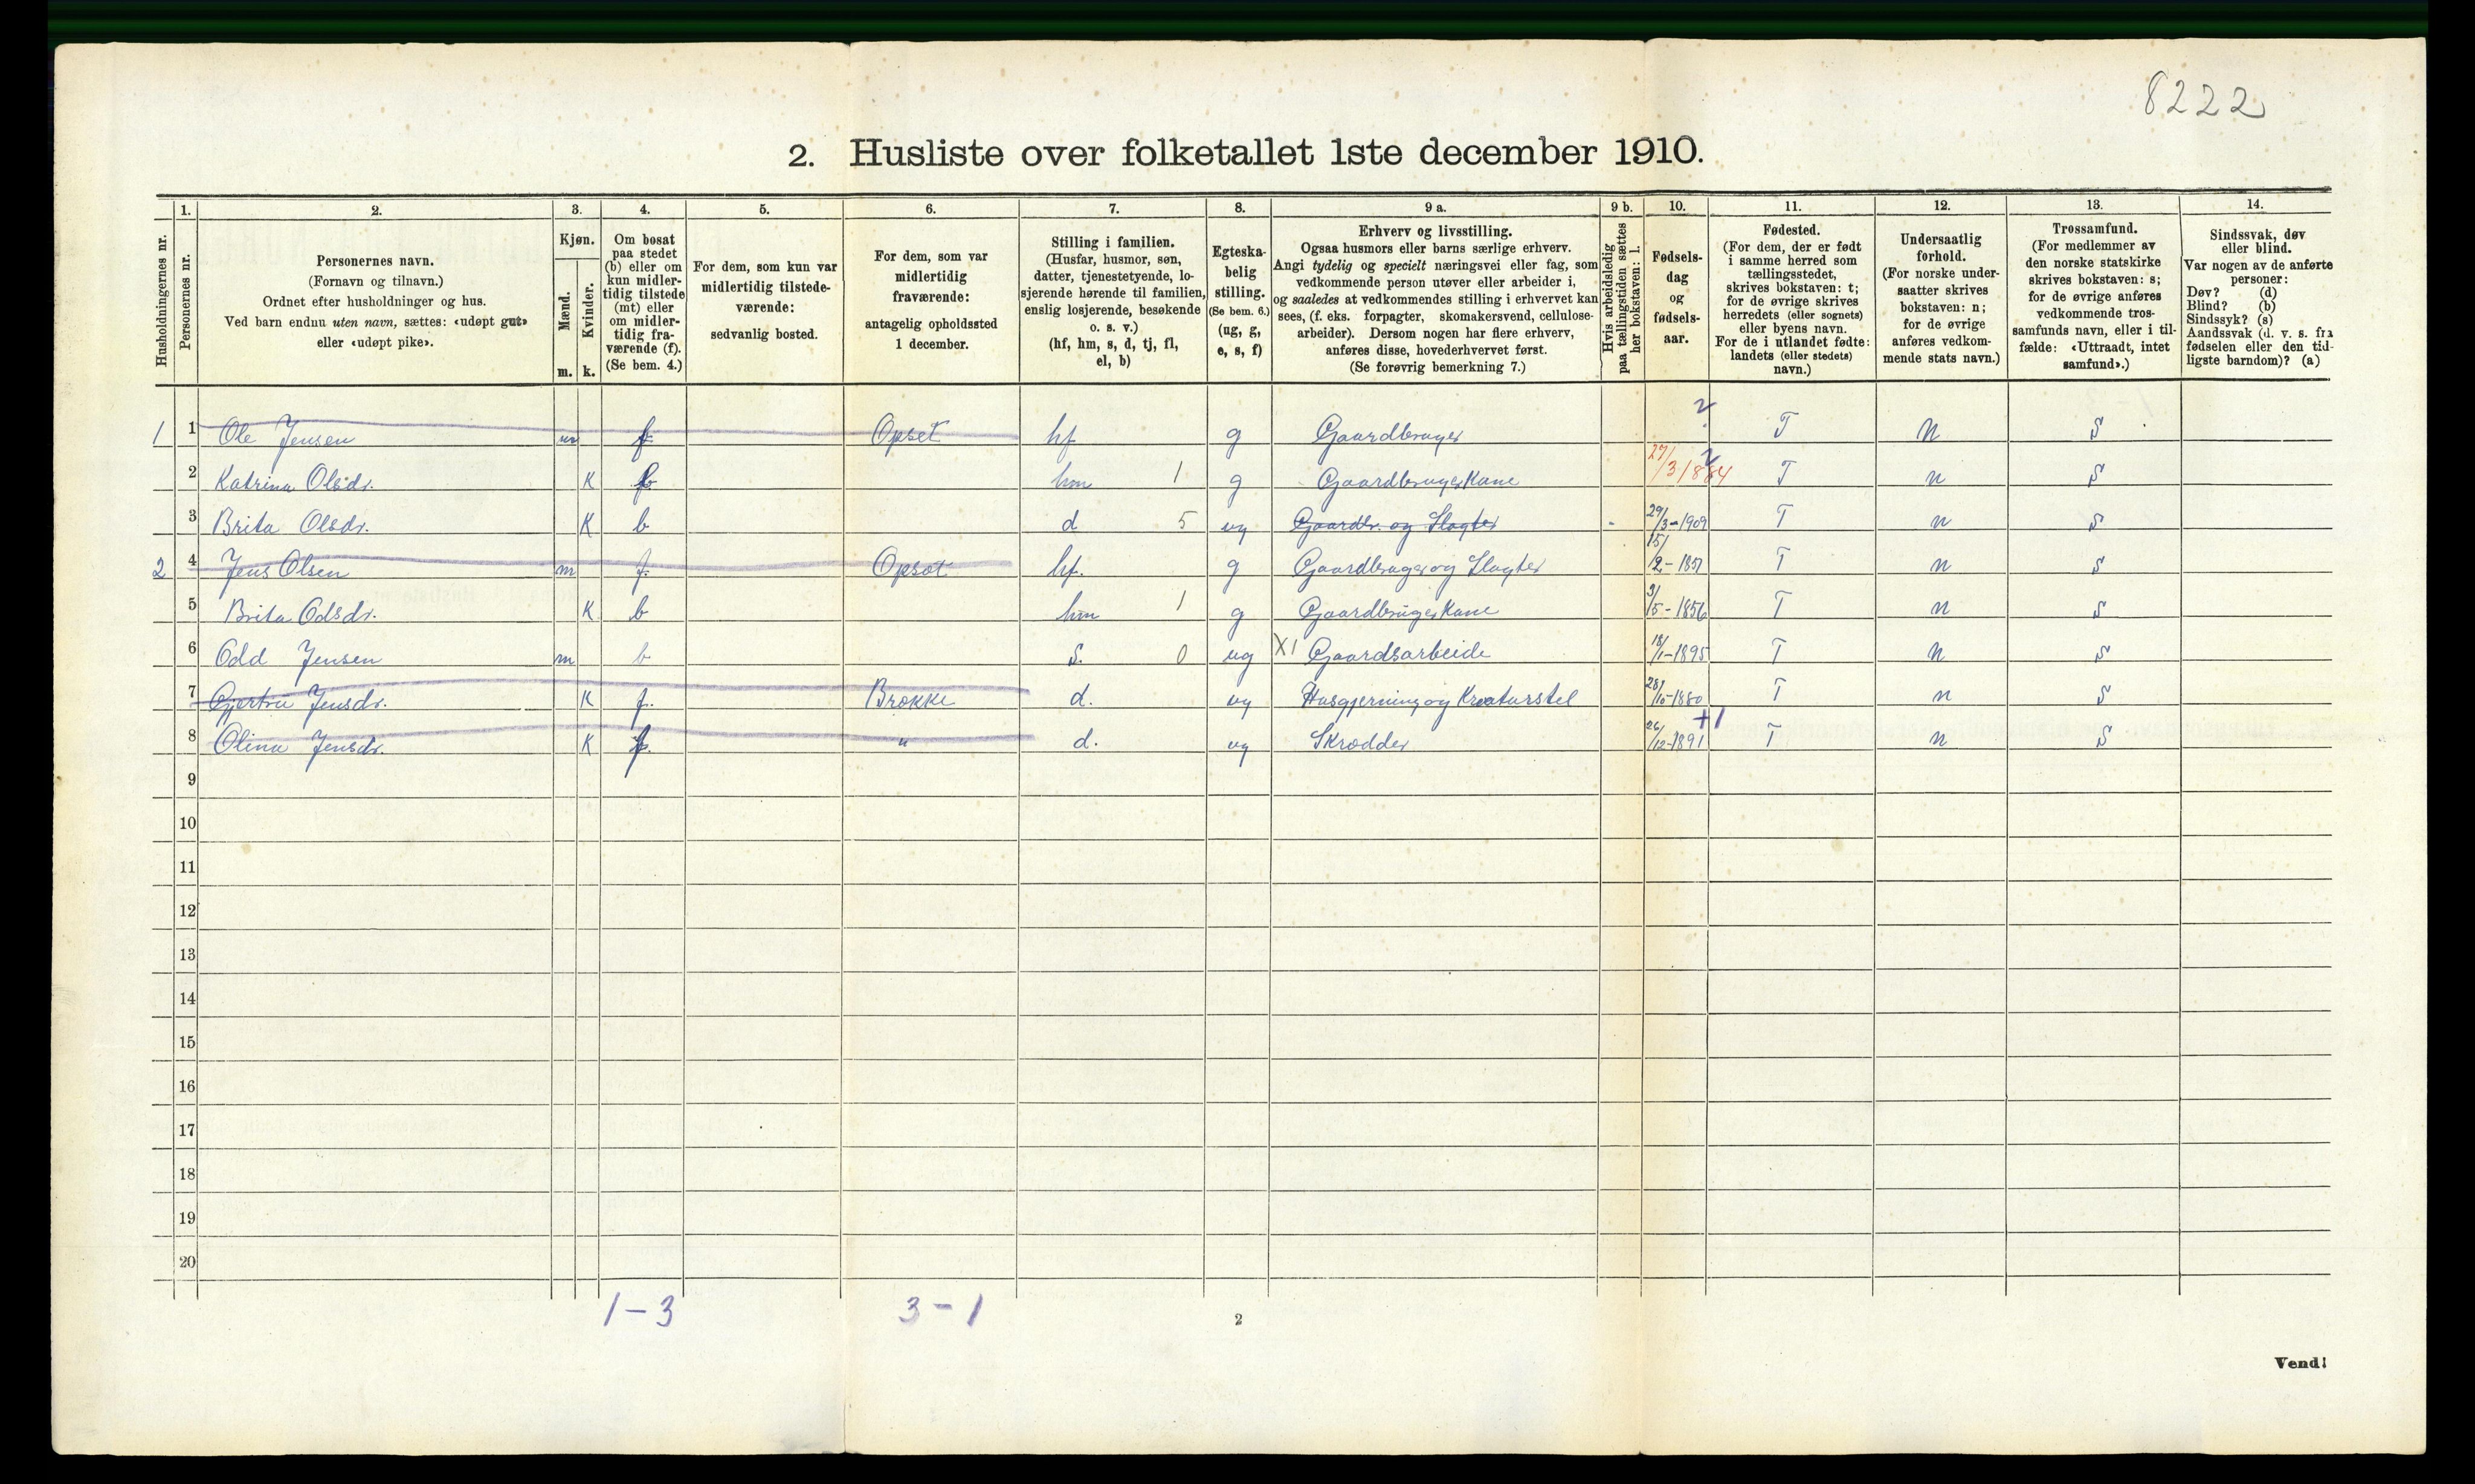 8222
2. Husliste over folketallet 1ste december 1910.
Husholdningernes nr.
1.
Personernes nr.
2.
Personernes navn.
(Fornavn og tilnavn.)
Ordnet efter husholdninger og hus.
Ved barn endnu uten navn, sættes: «udøpt gut»
eller «udøpt pike».
3.
Kjøn.
Mænd.
Kvinder.
m. k.
4.
Om bosat
paa stedet
(b) eller om
kun midler-
tidig tilstede
(mt) eller
om midler-
tidig fra-
værende (f).
(Se bem. 4.)
5.
For dem, som kun var
midlertidig tilstede-
værende:
sedvanlig bosted.
6.
For dem, som var
midlertidig
fraværende:
antagelig opholdssted
1 december.
7.
Stilling i familien.
(Husfar, husmor, søn,
datter, tjenestetyende, lo-
sjerende hørende til familien,
enslig losjerende, besøkende
o. s. v.)
(hf, hm, s, d, tj, fl,
el, b)
8.
Egteska-
belig
stilling.
(Se bem. 6.)
(ug, g,
e, s, f)
9 a.
Erhverv og livsstilling.
Ogsaa husmors eller barns særlige erhverv.
Angi tydelig og specielt næringsvei eller fag, som
vedkommende person utøver eller arbeider i,
og saaledes at vedkommendes stilling i erhvervet kan
sees, (f. eks. forpagter, skomakersvend, cellulose-
arbeider). Dersom nogen har flere erhverv,
anføres disse, hovederhvervet først.
(Se forøvrig bemerkning 7.)
9 b.
Hvis arbeidsledig
paa tællingstiden sættes
her bokstaven: l.
10.
Fødsels-
dag
og
fødsels-
aar.
11.
Fødested.
(For dem, der er født
i samme herred som
tællingsstedet,
skrives bokstaven: t;
for de øvrige skrives
herredets (eller sognets)
eller byens navn.
For de i utlandet fødte:
landets (eller stedets)
navn.)
12.
Undersaatlig
forhold.
(For norske under-
saatter skrives
bokstaven: n;
for de øvrige
anføres vedkom-
mende stats navn.)
13.
Trossamfund.
(For medlemmer av
den norske statskirke
skrives bokstaven: s;
for de øvrige anføres
vedkommende tros-
samfunds navn, eller i til-
fælde: «Uttraadt, intet
samfund».)
14.
Sindssvak, døv
eller blind.
Var nogen av de anførte
personer:
Døv? (d)
Blind? (b)
Sindssyk? (s)
Aandssvak (d. v. s. fra
fødselen eller den tid-
ligste barndom)? (a)
1 1 Ole Jensen m f Opset hf g Gaardbruger T n S
2 Katrina Olsdr. K hm 1 g Gaardbrugerkane 27/3 1884 T n S
3 Brita Olsdr. K b d 5 ug Gaardbr. og Slagter 29/3-1909 T n S
2 4 Jens Olsen m f. Opsot hf. g Gaardbruger og Slagter T n S
5 Brita Odsdr. K b hm 1 g Gaardbrugerkane 3/5-1856 T n S
6 Odd Jensen m b S. 0 ug X1 Gaardsarbeide 18/1-1895 T n S
7 Gjertru Jensdr. K f. Brokke d. ug Husgjerning og Kreaturstel 28/10-1880 T n S
8 Olina Jensdr. K f. " d. ug Skrodder 26/12-1891 +1 T n S
9
10
11
12
13
14
15
16
17
18
19
20
1 - 3 3 - 1
2
Vend!